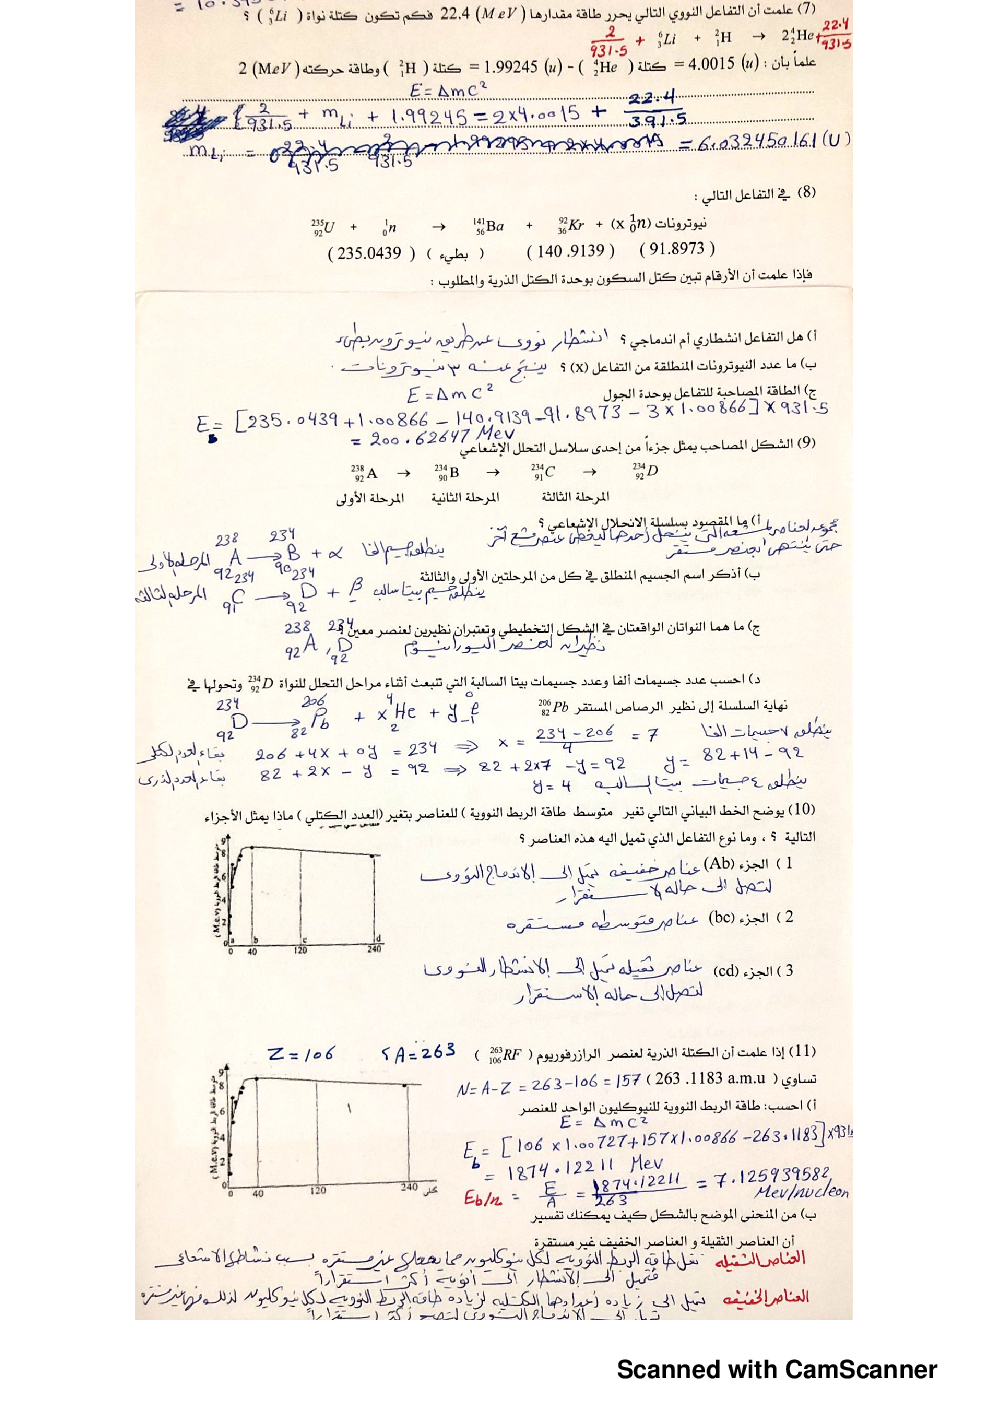 (7) علمت أن التفاعل النووي التالي يحرر طاقة مقدارها (MeV) 22.4 فكم تكون كتلة نواة ( ⁶₃Li ) ؟
2/931.5 + ⁶₃Li + ²₁H → 2⁴₂He + 22.4/931.5
علماً بأن : (u) 4.0015 = كتلة ( ⁴₂He ) - (u) 1.99245 = كتلة ( ²₁H ) وطاقة حركته (MeV) 2
E = Δmc²
2/931.5 + mLi + 1.99245 = 2x4.0015 + 22.4/391.5
mLi = = 6.032450161 (U)
(8) في التفاعل التالي :
²³⁵₉₂U + ¹₀n → ¹⁴¹₅₆Ba + ⁹²₃₆Kr + (x ¹₀n) نيوترونات
( 235.0439 ) ( بطيء ) ( 140 .9139 ) ( 91.8973 )
فإذا علمت أن الأرقام تبين كتل السكون بوحدة الكتل الذرية والمطلوب :
أ) هل التفاعل انشطاري أم اندماجي ؟ انشطار نووى عن طريق نيوترون بطئ
ب) ما عدد النيوترونات المنطلقة من التفاعل (x) ؟ ينتج عنه ٣ نيوترونات
ج) الطاقة المصاحبة للتفاعل بوحدة الجول
E = Δmc²
E = [235.0439 + 1.00866 - 140.9139 - 91.8973 - 3 x 1.00866] x 931.5
= 200.62647 Mev
(9) الشكل المصاحب يمثل جزءاً من إحدى سلاسل التحلل الإشعاعي
²³⁸₉₂A → ²³⁴₉₀B → ²³⁴₉₁C → ²³⁴₉₂D
المرحلة الأولى المرحلة الثانية المرحلة الثالثة
أ) ما المقصود بسلسلة الانحلال الإشعاعي ؟
مجموعه العناصر المشعه التى ينحل أحدها ليعطى عنصر مشع آخر
حتى ينتهى بعنصر مستقر
²³⁸₉₂A → ²³⁴₉₀B + α ينطلق جسيم الفا المرحله الأولى
ب) أذكر اسم الجسيم المنطلق في كل من المرحلتين الأولى والثالثة
²³⁴₉₁C → ²³⁴₉₂D + β ينطلق جسيم بيتا سالب المرحله الثالثه
ج) ما هما النواتان الواقعتان في الشكل التخطيطي وتعتبران نظيرين لعنصر معين ؟
²³⁸₉₂A , ²³⁴₉₂D نظيران لعنصر اليورانيوم
د) احسب عدد جسيمات ألفا وعدد جسيمات بيتا السالبة التي تنبعث أثناء مراحل التحلل للنواة ²³⁴₉₂D وتحولها في
نهاية السلسلة إلى نظير الرصاص المستقر ²⁰⁶₈₂Pb
²³⁴₉₂D → ²⁰⁶₈₂Pb + x⁴₂He + y⁰₋₁e
ينطلق ٧ جسيمات الفا
206 + 4x + 0y = 234 ⇒ x = 234 - 206/4 = 7
82 + 2x - y = 92 ⇒ 82 + 2x7 - y = 92 y = 82 + 14 - 92
y = 4 ينطلق ٤ جسيمات بيتا السالبه
(10) يوضح الخط البياني التالي تغير ( متوسط طاقة الربط النووية ) للعناصر بتغير (العدد الكتلي ) ماذا يمثل الأجزاء
التالية ؟ ، وما نوع التفاعل الذي تميل اليه هذه العناصر ؟
1 ) الجزء (Ab) عناصر خفيفه تميل الى الاندماج النووى
لتصل الى حاله الاستقرار
2 ) الجزء (bc) عناصر متوسطه مستقره
3 ) الجزء (cd) عناصر ثقيله تميل الى الانشطار النووى
لتصل الى حاله الاستقرار
9
8
6
4
2
0
a b c d
0 40 120 240
(11) إذا علمت أن الكتلة الذرية لعنصر الرازرفوريوم ( ²⁶³₁₀₆RF ) A = 263 Z = 106
تساوي ( 263 .1183 a.m.u ) N = A - Z = 263 - 106 = 157
أ) احسب: طاقة الربط النووية للنيوكليون الواحد للعنصر
E = Δmc²
Eb = [106 x 1.00727 + 157 x 1.00866 - 263.1183] x 931
= 1874.12211 Mev
Eb/n = E/A = 1874.12211/263 = 7.125939582 Mev/nucleon
9
8
6
4
2
0
0 40 120 240
ب) من المنحنى الموضح بالشكل كيف يمكنك تفسير
أن العناصر الثقيلة و العناصر الخفيف غير مستقرة
العناصر الثقيله تقل طاقه الربط النوويه لكل نيوكليون مما يجعلها غير مستقره بسبب نشاطها الاشعاعى
فتميل الى الانشطار الى أنويه أكثر استقراراً
العناصر الخفيفه تميل الى زياده أعدادها الكتليه لزياده طاقه الربط النوويه لكل نيوكليون لذلك فهى غير مستقره
الاندماج النووى لتصبح أكثر استقراراً
Scanned with CamScanner